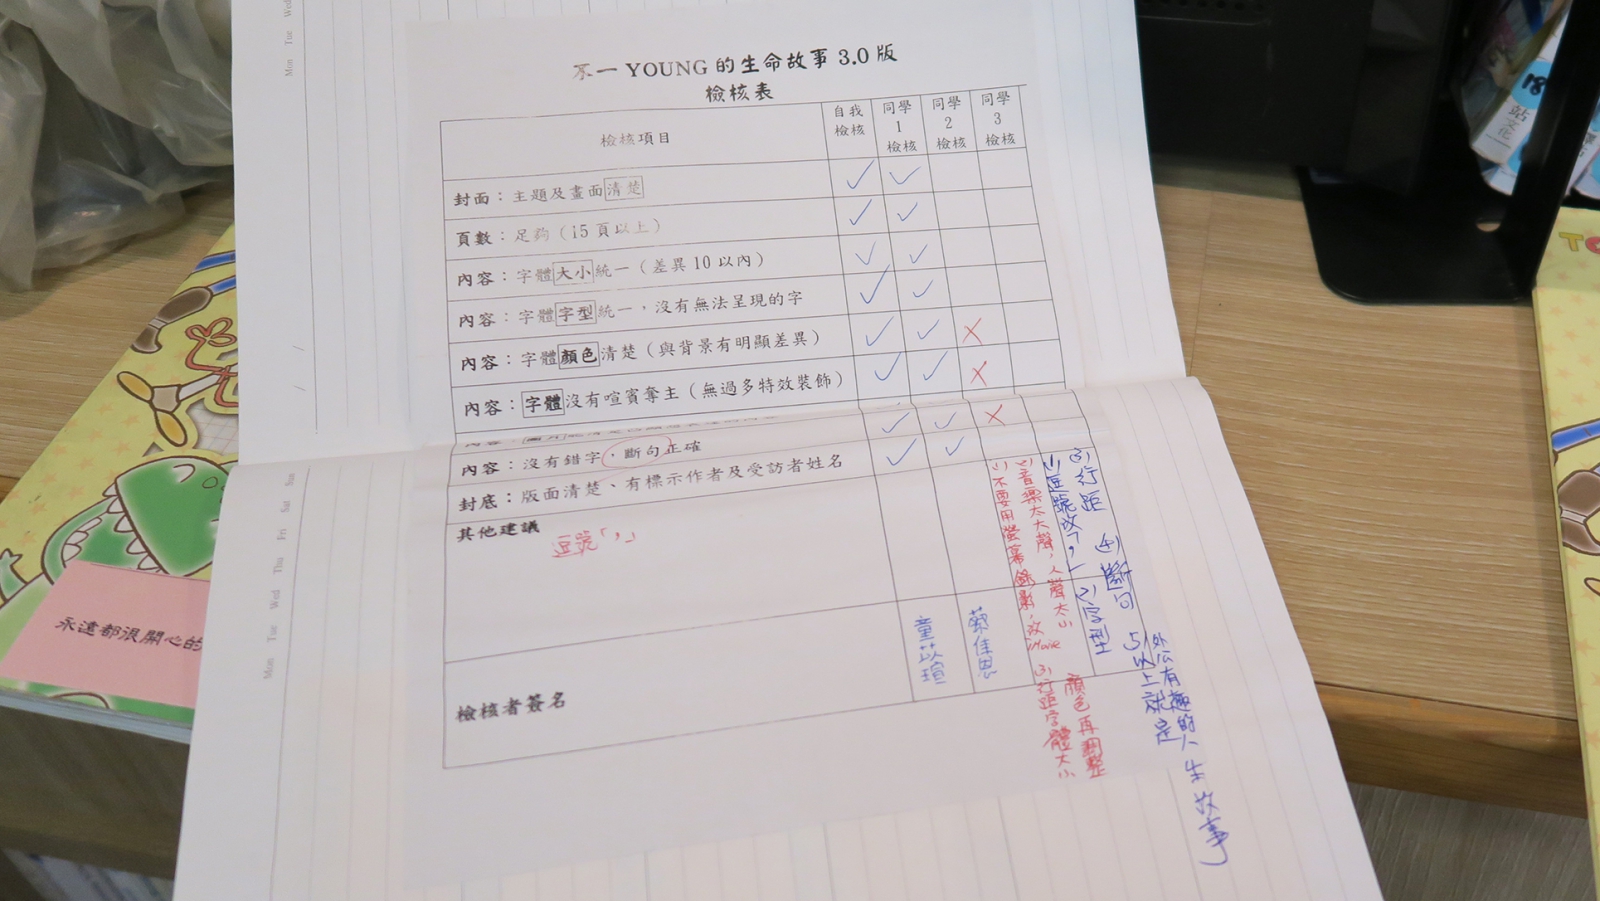 不一 YOUNG 的生命故事 3.0 版
檢核表
檢核項目
自我
檢核
同學
1
檢核
同學
2
檢核
同學
3
檢核
封面：主題及畫面清楚
頁數：足夠（15 頁以上）
內容：字體大小統一（差異 10 以內）
內容：字體字型統一，沒有無法呈現的字
內容：字體顏色清楚（與背景有明顯差異）
內容：字體沒有喧賓奪主（無過多特效裝飾）
內容：沒有錯字，斷句正確
封底：版面清楚、有標示作者及受訪者姓名
其他建議
逗號「，」
檢核者簽名
童苡瑄
蔡佳恩
(1)不要用螢幕錄影，改 iMovie
(2)音樂太大聲，人聲太小
(3)行距字體大小
顏色再調整
(1)逗號改「，」
(2)字型
(3)行距
(4)斷句
外公有精彩人生故事
永遠都很開心的
Mon Tue Wed
Mon Tue Wed Thu Fri Sat Sun
18
站
文化